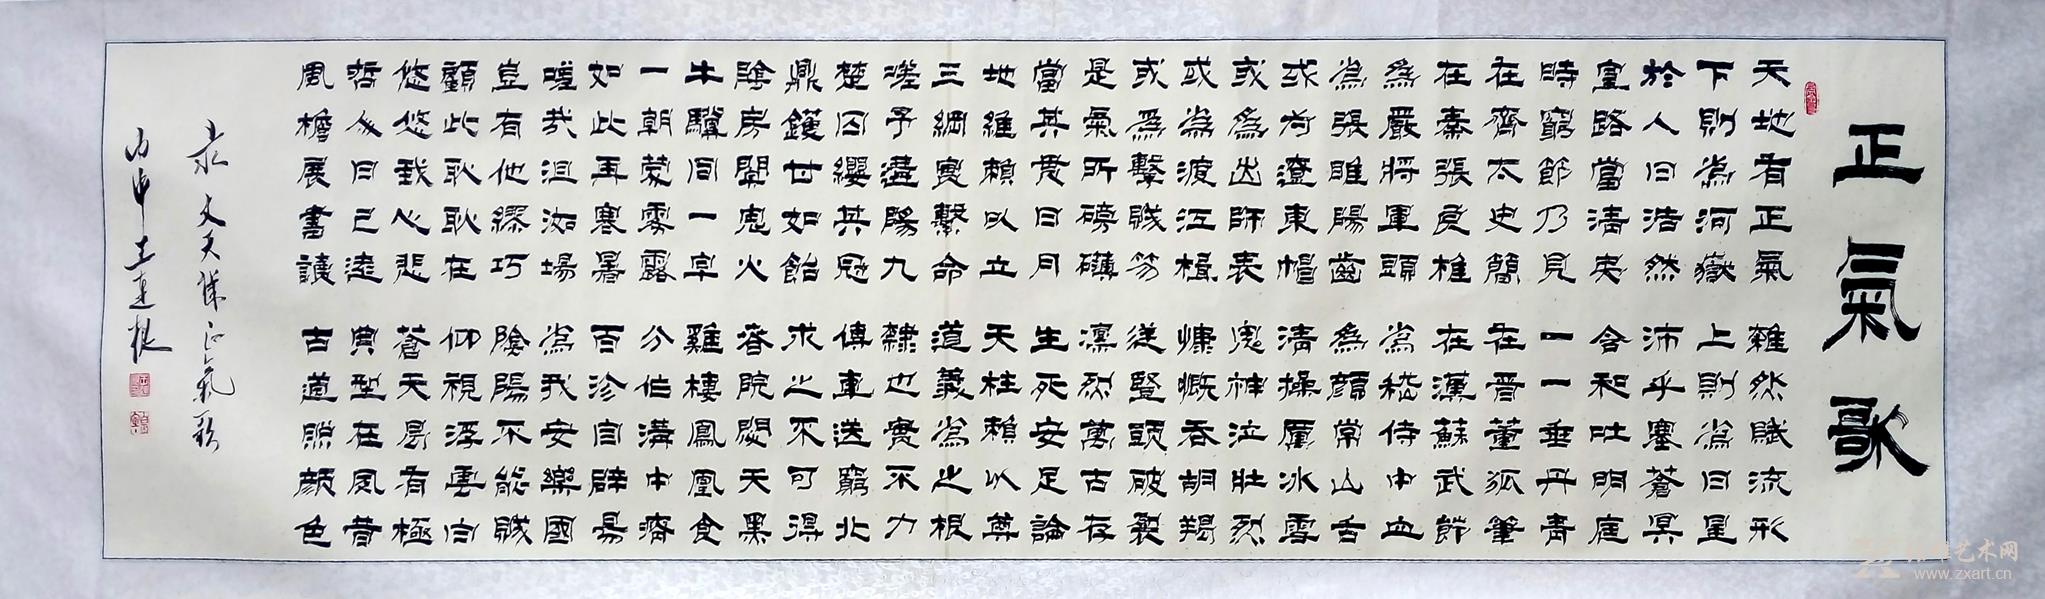 正氣歌
天地有正氣 雜然賦流形
下則為河嶽 上則為日星
於人曰浩然 沛乎塞蒼冥
皇路當清夷 含和吐明庭
時窮節乃見 一一垂丹青
在齊太史簡 在晉董狐筆
在秦張良椎 在漢蘇武節
為嚴將軍頭 為嵇侍中血
為張睢陽齒 為顏常山舌
或為遼東帽 清操厲冰雪
或為出師表 鬼神泣壯烈
或為渡江楫 慷慨吞胡羯
或為擊賊笏 逆豎頭破裂
是氣所磅礴 凜烈萬古存
當其貫日月 生死安足論
地維賴以立 天柱賴以尊
三綱實繫命 道義為之根
嗟予遘陽九 隸也實不力
楚囚纓其冠 傳車送窮北
鼎鑊甘如飴 求之不可得
陰房闃鬼火 春院閟天黑
牛驥同一皁 雞棲鳳凰食
一朝蒙霧露 分作溝中瘠
如此再寒暑 百沴自辟易
嗟哉沮洳場 為我安樂國
豈有他繆巧 陰陽不能賊
顧此耿耿在 仰視浮雲白
悠悠我心悲 蒼天曷有極
哲人日已遠 典型在夙昔
風檐展書讀 古道照顏色
录文天祥正氣歌
丙申王連根
艺术网
www.zxart.cn